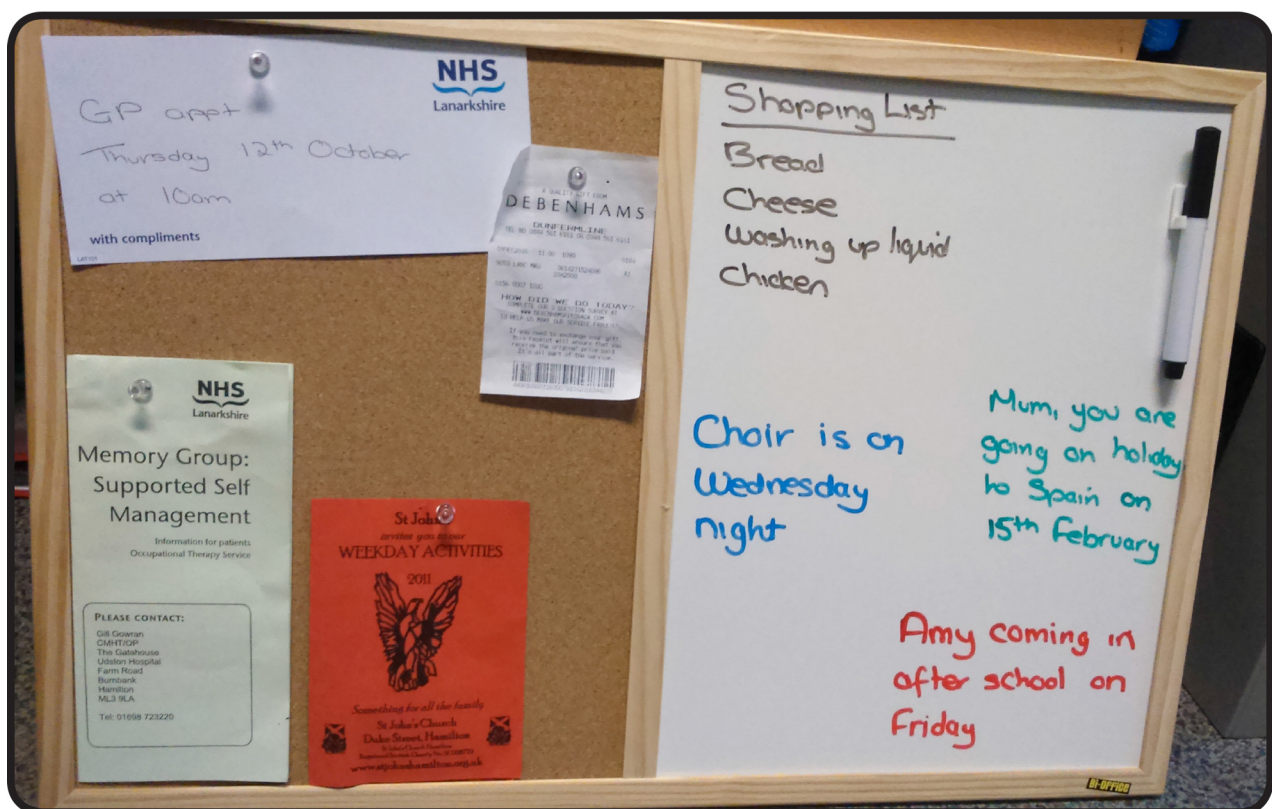 NHS
Lanarkshire
GP appt
Thursday 12th October
at 10am
with compliments
A QUALITY GIFT FROM
DEBENHAMS
DUNFERMLINE
HOW DID WE DO TODAY?
If you need to exchange your gift
this receipt will ensure that you
receive the original price paid
It's all part of the service.
NHS
Lanarkshire
Memory Group:
Supported Self
Management
Information for patients
Occupational Therapy Service
PLEASE CONTACT:
Gill Gowran
CMHT/OP
The Gatehouse
Udston Hospital
Farm Road
Burnbank
Hamilton
ML3 9LA
Tel: 01698 723220
St John
invites you to our
WEEKDAY ACTIVITIES
2011
Something for all the family
St John's Church
Duke Street, Hamilton
www.stjohnshamilton.org.uk
Shopping List
Bread
Cheese
Washing up liquid
Chicken
Choir is on
Wednesday
night
Mum, you are
going on holiday
to Spain on
15th February
Amy coming in
after school on
Friday
BI-OFFICE